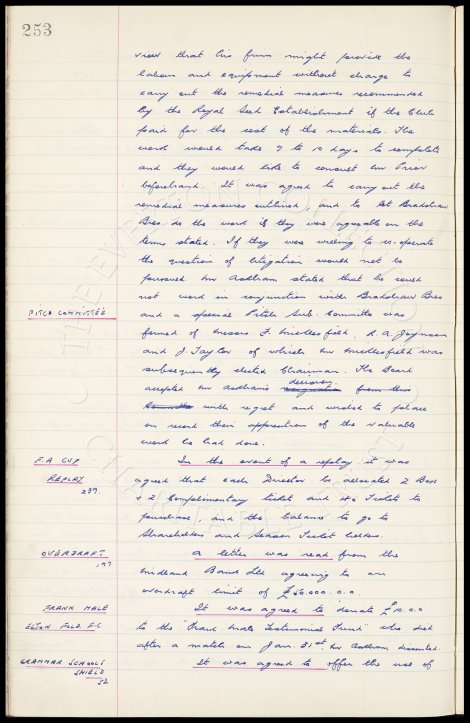 253
view that his firm might provide the
labour and equipment without charge to
carry out the remedial measures recommended
by the Royal Seed Establishment if the Club
paid for the cost of the materials. The
work would take 7 to 10 days to complete
and they would like to consult Mr Prior
beforehand. It was agreed to carry out the
remedial measures outlined, and to let Bradshaw
Bros do the work if they were agreeable on the
terms stated. If they were willing to co-operate
the question of litigation would not be
pursued Mr Askham stated that he could
not work in conjunction with Bradshaw Bros
PITCH COMMITTEE
and a special Pitch Sub. Committee was
formed of Messrs F. Micklesfield, R.A. Joynson
and J. Taylor of which Mr Micklesfield was
subsequently elected Chairman. The Board
accepted Mr Askham's decision resignation from this
Committee with regret and wished to place
on record their appreciation of the valuable
work he had done.
F.A CUP
REPLAY
239.
In the event of a replay it was
agreed that each Director be allocated 2 Box
+ 2 Complimentary tickets and Tickets to
purchase, and the balance to go to
Shareholders and Season Ticket holders.
OVERDRAFT
197
A letter was read from the
Midland Bank Ltd agreeing to an
overdraft limit of £50.000.0.0.
FRANK MALE
FOLD. F.C
It was agreed to donate £10.0.0
to the "Frank Male Testimonial Fund" who died
after a match on Jan. 21st. Mr Askham dissented.
GRAMMAR SCHOOLS
SHIELD
52
It was agreed to offer the use of